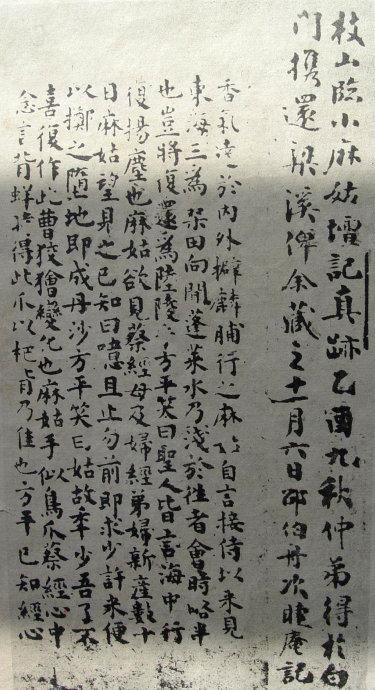 枝山臨小麻姑壇記真跡乙酉九秋仲弟得於白
門攜還梁溪俾余藏之十一月六日邵伯舟次睫庵記
香氣達於內外擗麟脯行之麻姑自言接侍以來見
東海三為桑田向聞蓬萊水乃淺於往者會時略半
也豈將復還為陸陵乎方平笑曰聖人皆言海中行
復揚塵也麻姑欲見蔡經母及婦經弟婦新產數十
日麻姑望見之已知曰噫且止勿前即求少許米便
以擲之墮地即成丹沙方平笑曰姑故年少吾了不
喜復作此曹狡獪變化也麻姑手似鳥爪蔡經心中
念言背蛘時得此爪以杷背乃佳也方平已知經心